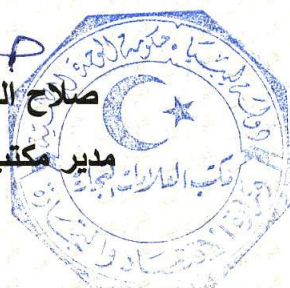 صلاح
مدير مكتب
دولة ليبيا - حكومة الوفاق الوطني
مكتب العلامات التجارية
وزارة الاقتصاد والتجارة